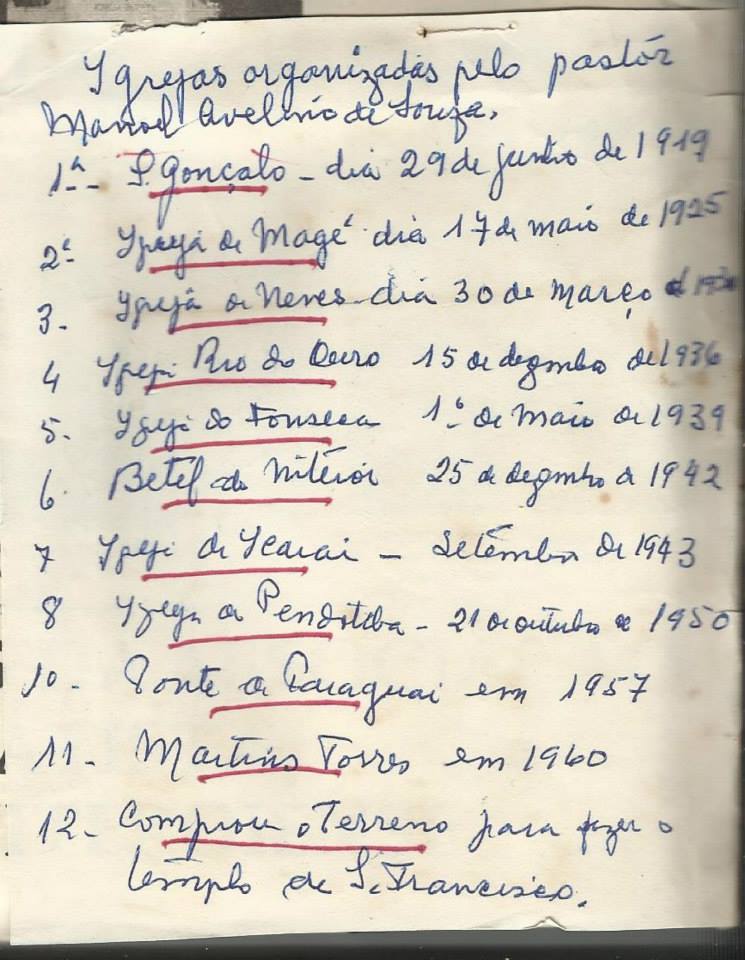 Igrejas organizadas pelo pastôr
Manoel Avelino de Souza.
1ª - S. Gonçalo - dia 29 de junho de 1919
2ª - Igreja de Magé dia 17 de maio de 1925
3. Igreja de Neves - dia 30 de março d
4 Igreja Rio do Ouro 15 de dezembro de 1936
5. Igreja do Fonseca 1º de Maio de 1939
6. Betel de Niterói 25 de dezembro de 1942
7 Igreja de Icarai - Setêmbro de 1943
8 Igreja de Pendotiba - 21 de outubro de 1950
10. Ponte de Paraguai em 1957
11. Martins Torres em 1960
12. Comprou o Terreno para fazer o
templo de S. Francisco.